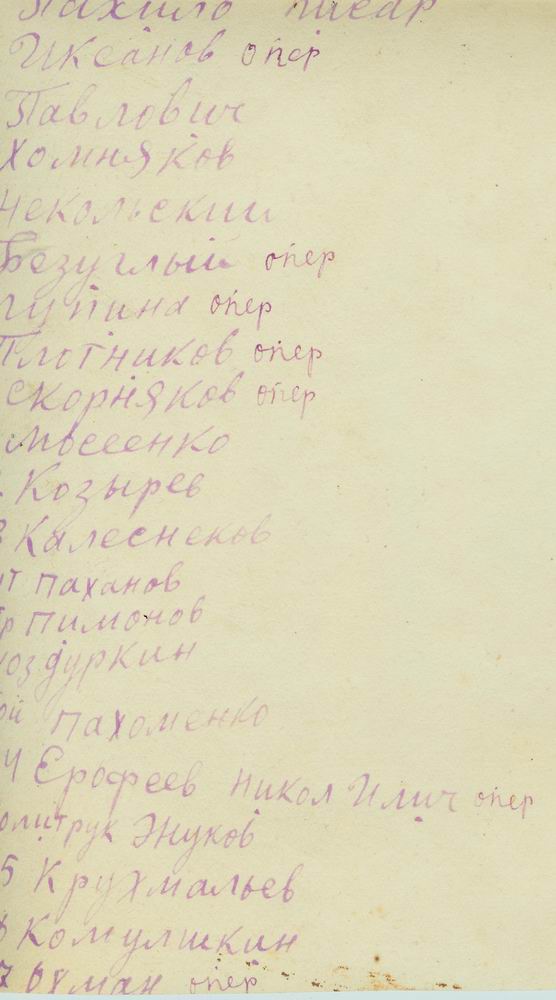 Пахило писар
Иксанов опер
Павлович
Хомняков
Чекольский
Безуглый опер
лупина опер
Плотников опер
Скорняков опер
Мосеенко
Козырев
Калеснеков
паханов
пимонов
Пахоменко
4 Ерофеев Никол Илич опер
олитрук Энуков
5 Крухмальев
Комулшкин
7 Охман опер